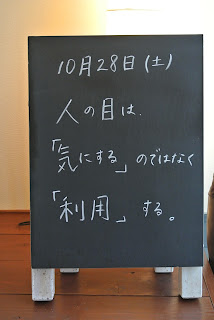 10月28日(土)
人の目は、
「気にする」のではなく
「利用」する。